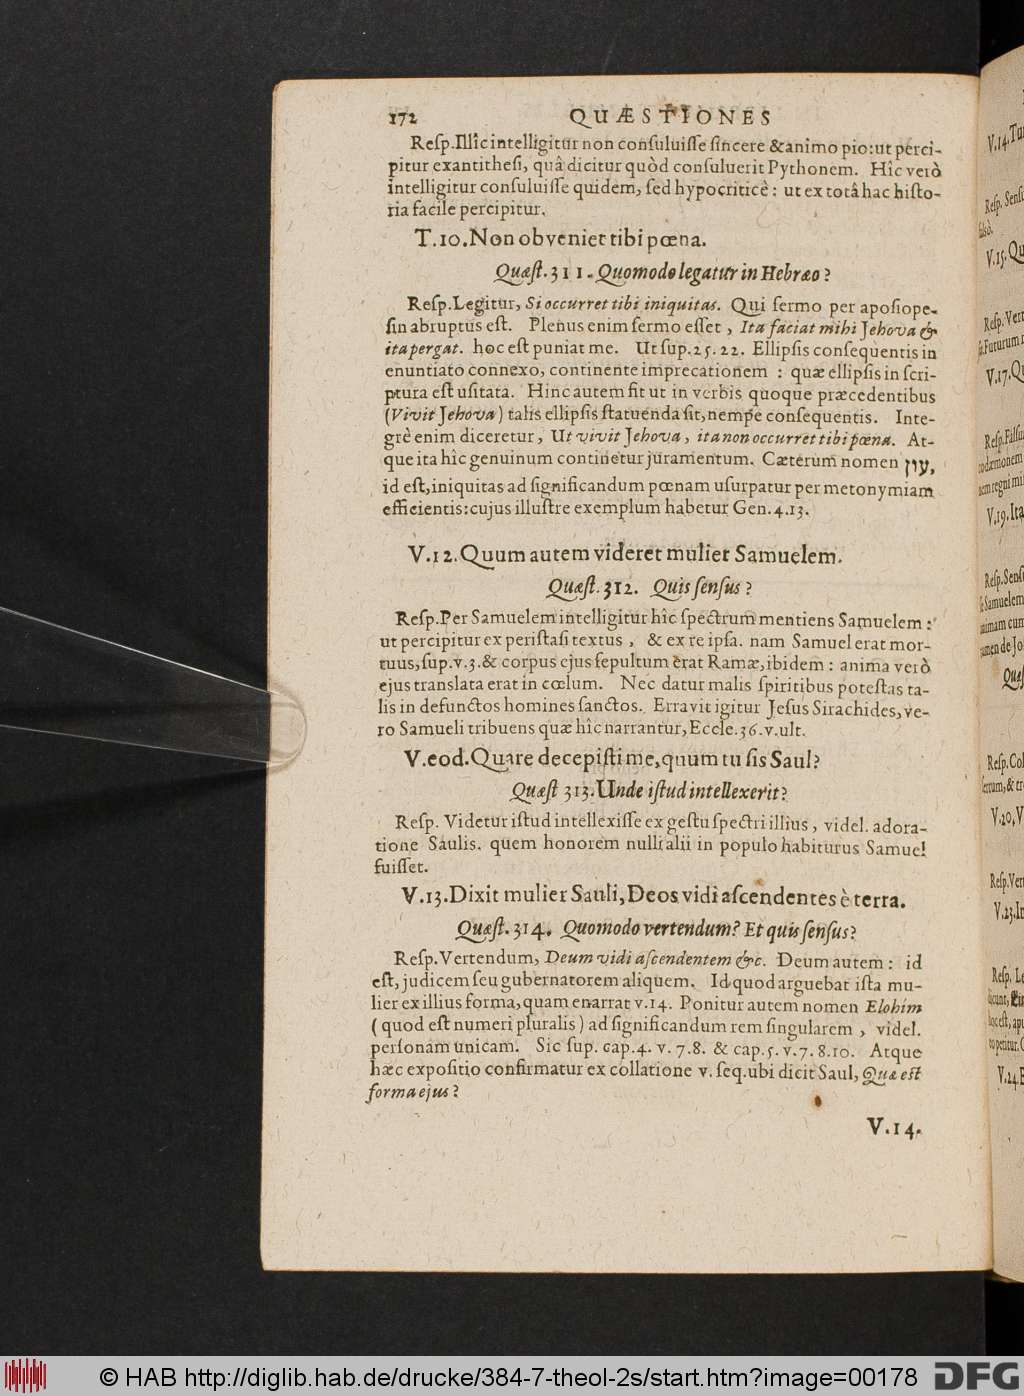 172 QUÆSTIONES
Reſp. Illîc intelligitur non conſuluiſſe ſincere & animo pio: ut perci-
pitur ex antitheſi, quâ dicitur quòd conſuluerit Pythonem. Hîc verò
intelligitur conſuluiſſe quidem, ſed hypocriticè: ut ex totâ hac hiſto-
ria facile percipitur.
T.10. Non obveniet tibi pœna.
Quæſt. 311. Quomodo legatur in Hebræo?
Reſp. Legitur, Si occurret tibi iniquitas. Qui ſermo per apoſiope-
ſin abruptus eſt. Plenus enim ſermo eſſet, Ita faciat mihi Jehova &
ita pergat. hoc eſt puniat me. Ut ſup. 25. 22. Ellipſis conſequentis in
enuntiato connexo, continente imprecationem: quæ ellipſis in ſcri-
ptura eſt uſitata. Hinc autem fit ut in verbis quoque præcedentibus
(Vivit Jehova) talis ellipſis ſtatuenda ſit, nempe conſequentis. Inte-
grè enim diceretur, Ut vivit Jehova, ita non occurret tibi pœna. At-
que ita hîc genuinum continetur juramentum. Cæterum nomen עון,
id eſt, iniquitas ad ſignificandum pœnam uſurpatur per metonymiam
efficientis: cujus illuſtre exemplum habetur Gen. 4. 13.
V.12. Quum autem videret mulier Samuelem.
Quæſt. 312. Quis ſenſus?
Reſp. Per Samuelem intelligitur hîc ſpectrum mentiens Samuelem:
ut percipitur ex periſtaſi textus, & ex re ipſa. nam Samuel erat mor-
tuus, ſup. v. 3. & corpus ejus ſepultum erat Ramæ, ibidem: anima verò
ejus translata erat in cœlum. Nec datur malis ſpiritibus poteſtas ta-
lis in defunctos homines ſanctos. Erravit igitur Jeſus Sirachides, ve-
ro Samueli tribuens quæ hîc narrantur, Eccle. 36. v. ult.
V. eod. Quare decepiſti me, quum tu ſis Saul?
Quæſt 313. Unde iſtud intellexerit?
Reſp. Videtur iſtud intellexiſſe ex geſtu ſpectri illius, videl. adora-
tione Saulis. quem honorem nulli alii in populo habiturus Samuel
fuiſſet.
V.13. Dixit mulier Sauli, Deos vidi aſcendentes è terra.
Quæſt. 314. Quomodo vertendum? Et quis ſenſus?
Reſp. Vertendum, Deum vidi aſcendentem &c. Deum autem: id
eſt, judicem ſeu gubernatorem aliquem. Id quod arguebat iſta mu-
lier ex illius forma, quam enarrat v. 14. Ponitur autem nomen Elohim
(quod eſt numeri pluralis) ad ſignificandum rem ſingularem, videl.
perſonam unicam. Sic ſup. cap. 4. v. 7. 8. & cap. 5. v. 7. 8. 10. Atque
hæc expoſitio confirmatur ex collatione v. ſeq. ubi dicit Saul, Quæ eſt
forma ejus?
V. 14.
V.14. Tu
Reſp. Senſu
V.15. Qu
Reſp. Vert
V.17. Qu
Reſp. Falſu
V.19. Ita
Reſp. Senſ
V.20, V
Reſp. Vert
V.23. In
Reſp. Le
V.24. E
© HAB http://diglib.hab.de/drucke/384-7-theol-2s/start.htm?image=00178
DFG